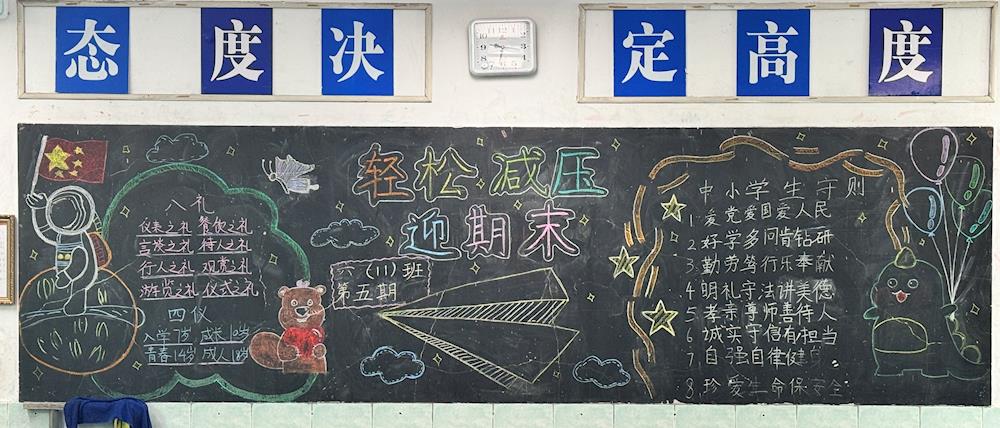 态度决定高度
轻松减压
迎期末
六(11)班
第五期
八礼
仪表之礼 餐饮之礼
言谈之礼 待人之礼
行人之礼 观赏之礼
游览之礼 仪式之礼
四仪
入学7岁 成长10岁
青春14岁 成人18岁
中小学生守则
1 爱党爱国爱人民
2 好学多问肯钻研
3 勤劳笃行乐奉献
4 明礼守法讲美德
5 孝亲尊师善待人
6 诚实守信有担当
7 自强自律健
8 珍爱生命保安全